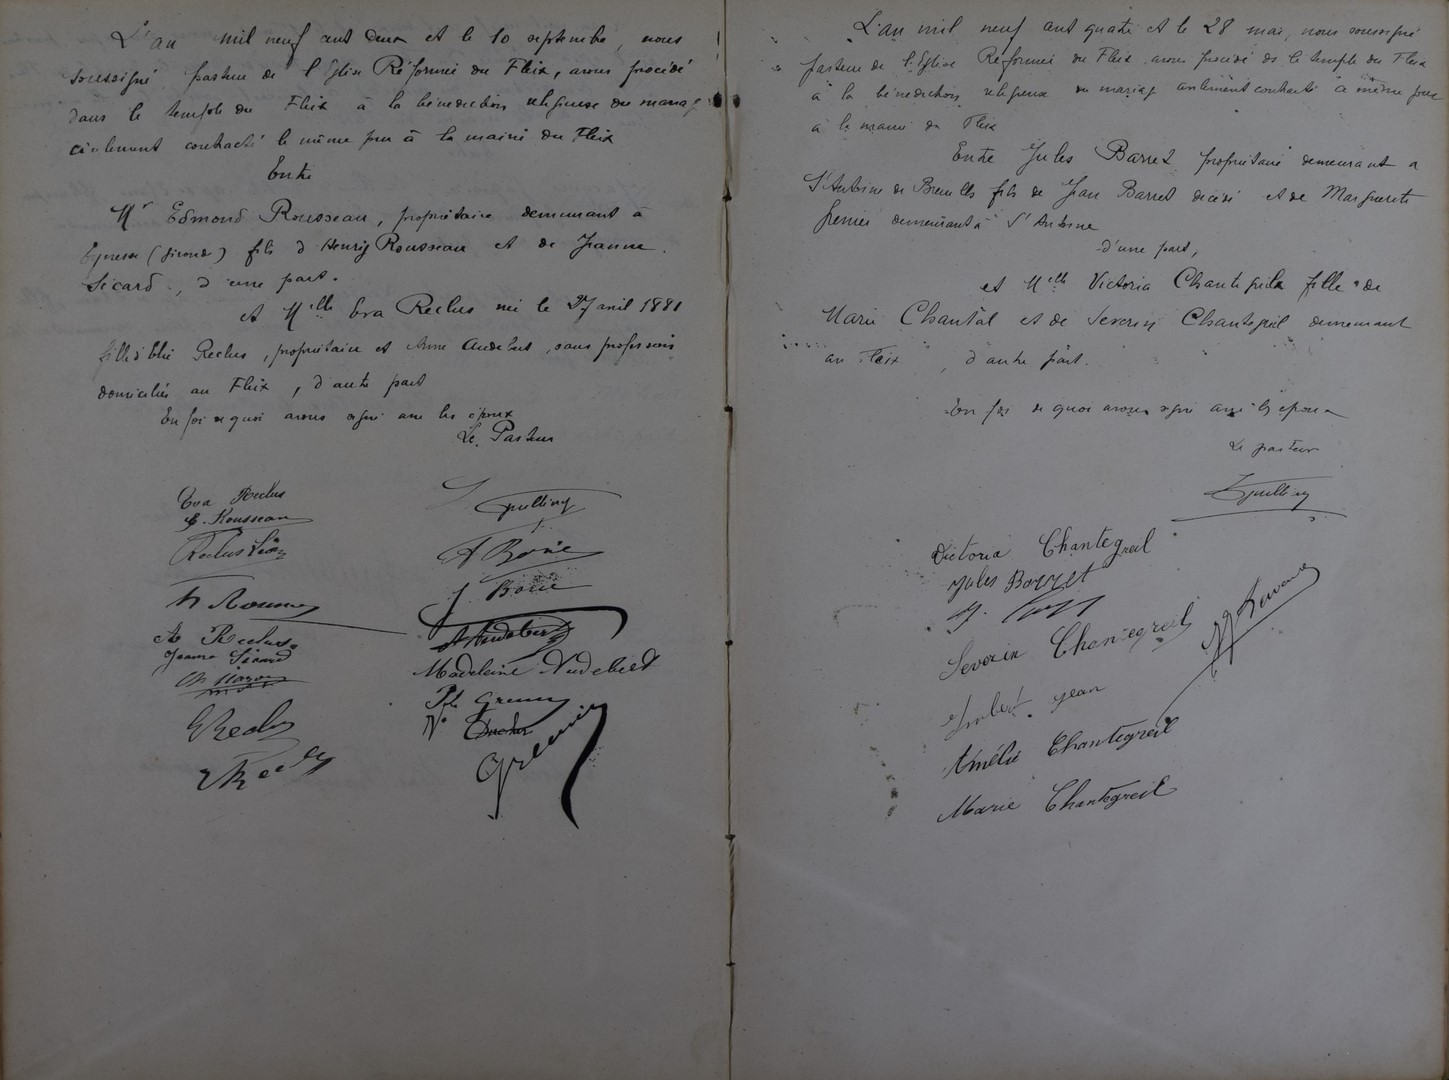 L'an mil neuf cent deux et le 10 septembre, nous
soussigné pasteur de l'Eglise Réformée du Fleix, avons procédé
dans le temple du Fleix à la bénédiction religieuse du mariage
civilement contracté le même jour à la mairie du Fleix
Entre
Mr Edmond Rousseau, propriétaire demeurant à
Eynesse (Gironde) fils d'Henry Rousseau et de Jeanne
Sicard, d'une part.
et Melle Eva Reclus née le 27 avril 1881
fille d'Elie Reclus, propriétaire et Anne Audebert, sans profession
domiciliés au Fleix, d'autre part
En foi de quoi avons signé avec les époux
Le Pasteur
Eva Reclus
E. Rousseau
Reclus Léon
H Rousseau
A Reclus
Jeanne Sicard
E Reclus
A Borie
J. Borie
A Audebert
Madeleine Audebert
L'an mil neuf cent quatre et le 28 mai, nous soussigné
pasteur de l'Eglise Réformée du Fleix avons procédé ds le temple du Fleix
à la bénédiction religieuse du mariage civilement contracté le même jour
à la mairie du Fleix
Entre Jules Barret propriétaire demeurant à
St Antoine de Breuilh fils de Jean Barret décédé et de Marguerite
demeurant à St Antoine
d'une part,
et Melle Victoria Chantegreil fille de
Marie Chantal et de Severin Chantegreil demeurant
au Fleix, d'autre part.
En foi de quoi avons signé avec les époux
Le pasteur
Victoria Chantegreil
Jules Barret
Severin Chantegreil
Imbert Jean
Amélie Chantegreil
Marie Chantegreil